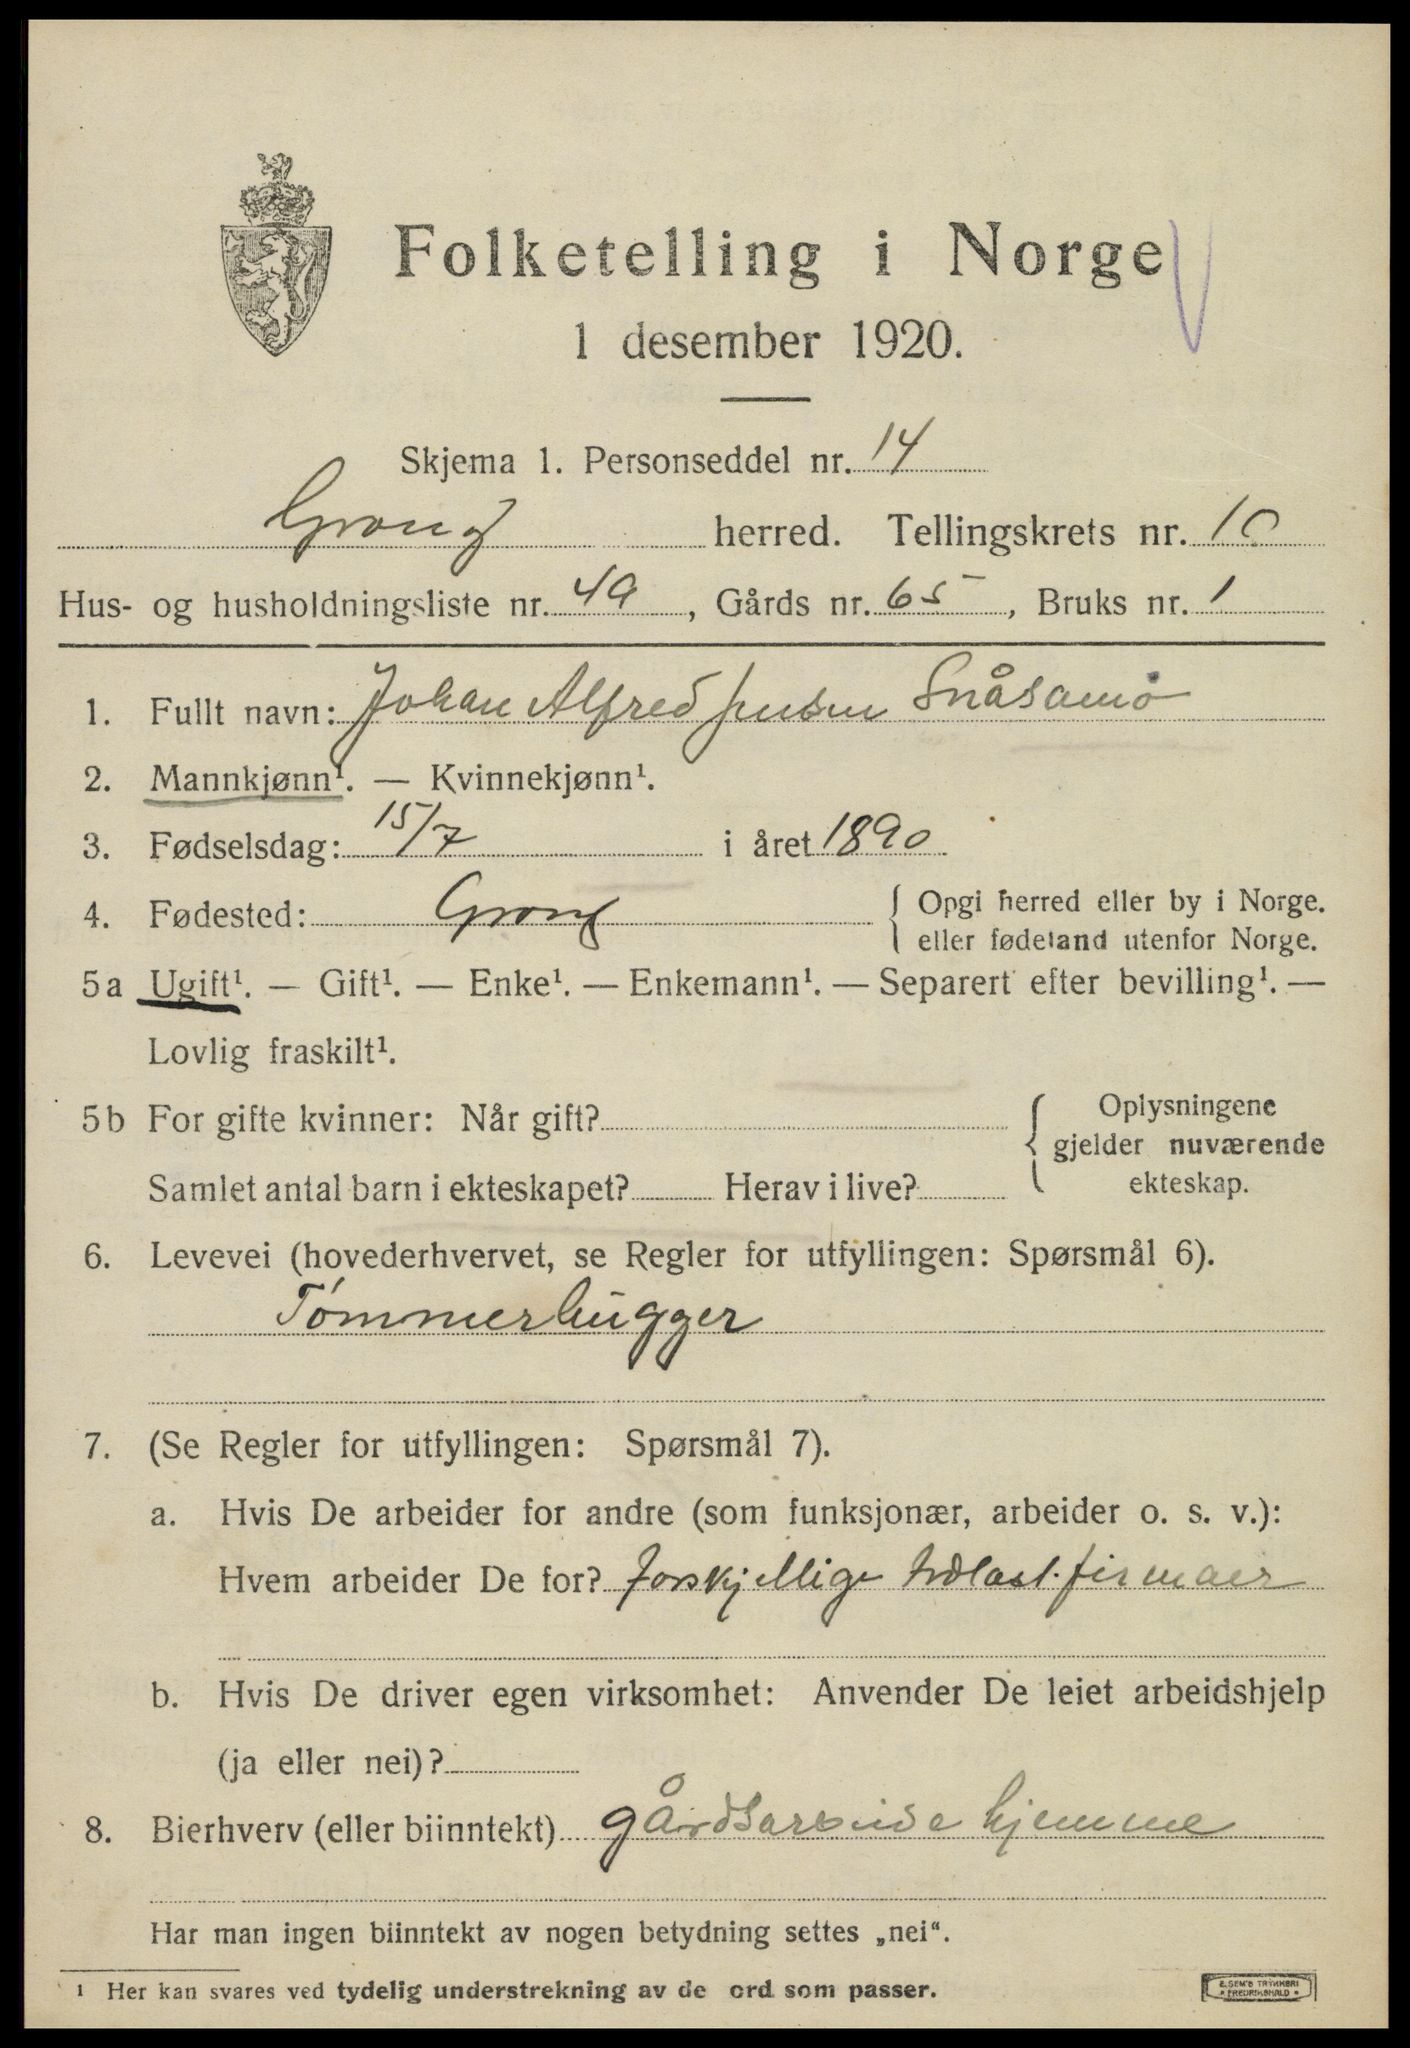 Folketelling i Norge
1 desember 1920.
Skjema 1. Personseddel nr. 14
Grong herred. Tellingskrets nr. 10
Hus- og husholdningsliste nr. 49, Gårds nr. 65, Bruks nr. 1
1. Fullt navn: Johan Alfred Jensen Snåsamo
2. Mannkjønn¹. — Kvinnekjønn¹.
3. Fødselsdag: 15/7 i året 1890
4. Fødested: Grong { Opgi herred eller by i Norge.
eller fødeland utenfor Norge.
5a Ugift¹. — Gift¹. — Enke¹. — Enkemann¹. — Separert efter bevilling¹. —
Lovlig fraskilt¹.
5b For gifte kvinner: Når gift? { Oplysningene
gjelder nuværende
Samlet antal barn i ekteskapet? Herav i live? ekteskap.
6. Levevei (hovederhvervet, se Regler for utfyllingen: Spørsmål 6).
Tømmerhugger
7. (Se Regler for utfyllingen: Spørsmål 7).
a. Hvis De arbeider for andre (som funksjonær, arbeider o. s. v.):
Hvem arbeider De for? Forskjellige trælast.firmaer
b. Hvis De driver egen virksomhet: Anvender De leiet arbeidshjelp
(ja eller nei)?
8. Bierhverv (eller biinntekt) gårdsarbeide hjemme
Har man ingen biinntekt av nogen betydning settes „nei“.
¹ Her kan svares ved tydelig understrekning av de ord som passer.
E. SEM'S TRYKKERI
• FREDRIKSHALD •